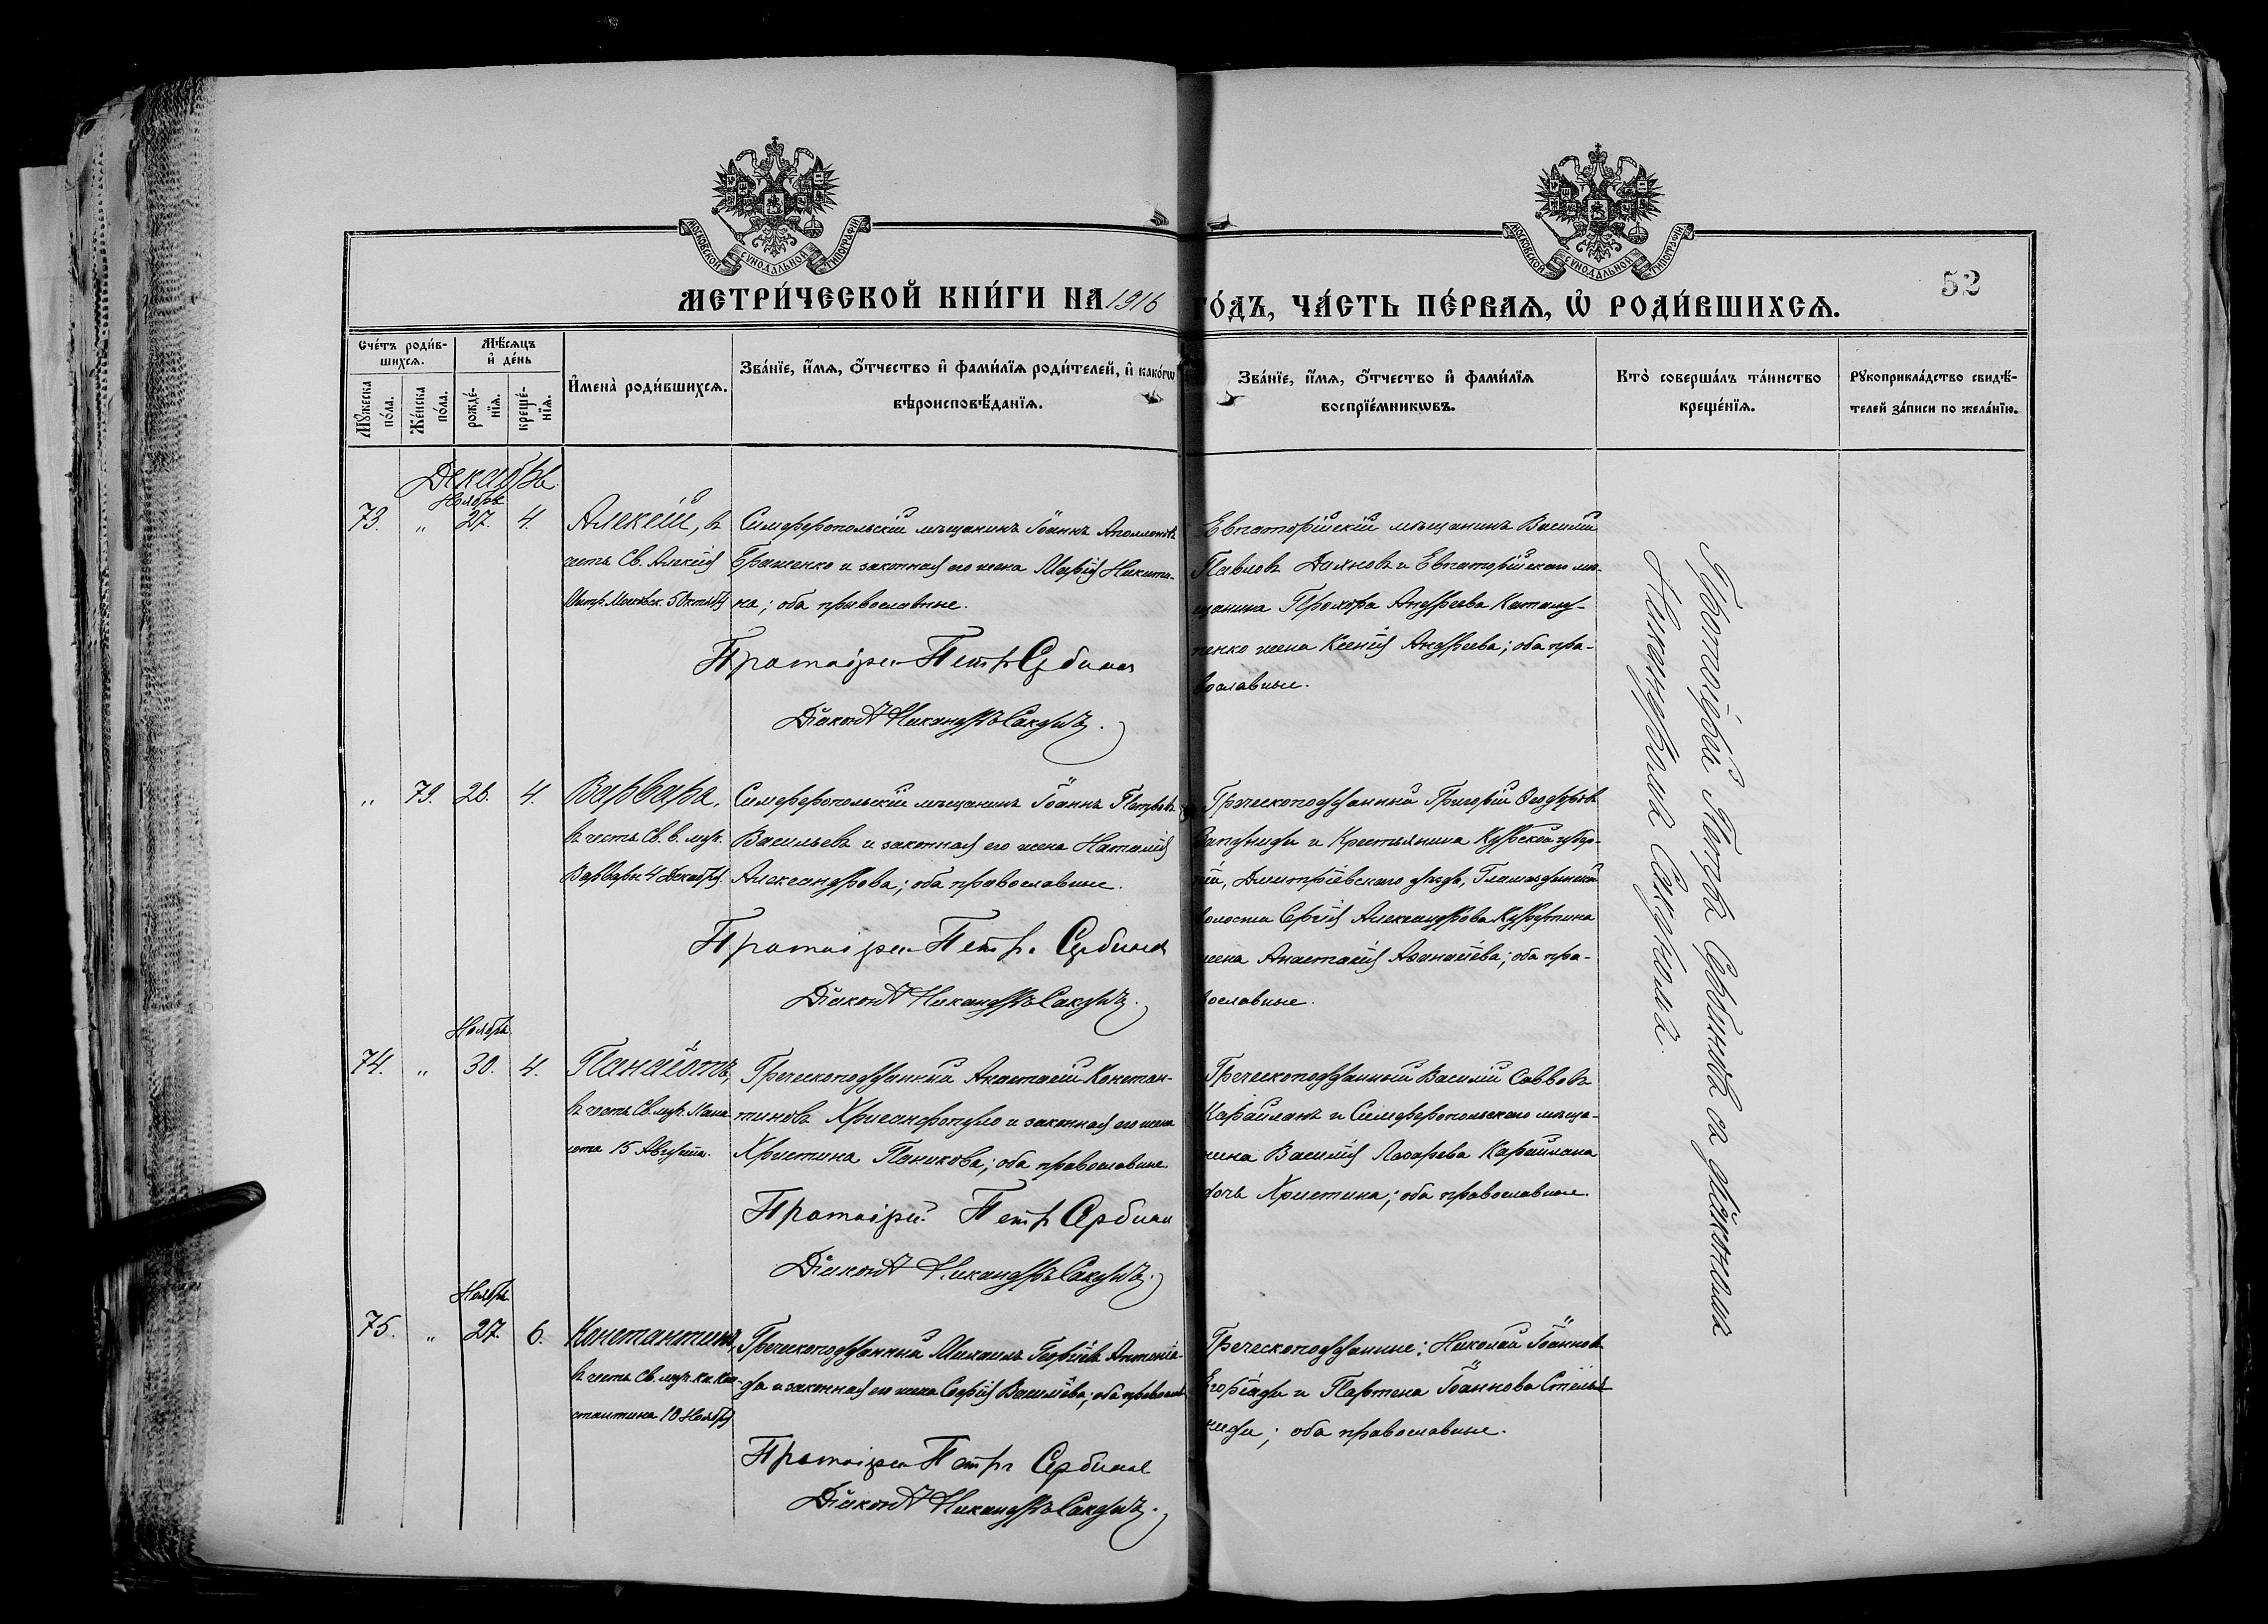 МОСКОВСКОЙ СѴНОДАЛЬНОЙ ТИПОГРАФІИ
МОСКОВСКОЙ СѴНОДАЛЬНОЙ ТИПОГРАФІИ
52
МЕТРИ́ЧЕСКОЙ КНИ́ГИ НА 1916 ГО́ДЪ, ЧА́СТЬ ПЕ́РВАѦ, Ѡ҆ РОДИ́ВШИХСѦ.
Сче́тъ роди́в-
шихсѧ.
Мꙋ́жеска
по́ла.
Же́нска
по́ла.
Мѣ́сѧцъ
и҆ де́нь
рожде́-
нїѧ.
креще́-
нїѧ.
И҆мена̀ роди́вшихсѧ.
Зва́нїе, и҆́мѧ, ѻ҆́тчество и҆ фами́лїѧ роди́телей, и҆ како́гѡ
вѣроисповѣ́данїѧ.
Зва́нїе, и҆́мѧ, ѻ҆́тчество и҆ фами́лїѧ
воспрїе́мникѡвъ.
Кто̀ соверша́лъ та́инство
креще́нїѧ.
Рꙋкоприкла́дство свидѣ́-
телей за́писи по жела́нїю.
Декабрь
Ноябрь
73. „ 27. 4.
Алексій, въ
честь Св. Алексія
Митр. Московск. 5 Октября
Симферопольскій мѣщанинъ Іоаннъ Аполлоновъ
Браженко и законная его жена Марія Никити-
на; оба православные.
Протоіерей Петръ Сербиновъ
Діаконъ Никандръ Сакунъ.
Евпаторійскій мѣщанинъ Василій
Павловъ и Евпаторійскаго мѣ-
щанина Прохора Андреева
жена Ксенія Андреева; оба пра-
вославные.
„ 79. 26. 4.
Варвара,
въ честь Св. в. муч.
Варвары 4 Декабря.
Симферопольскій мѣщанинъ Іоаннъ Петровъ
Васильевъ и законная его жена Наталія
Александрова; оба православные.
Протоіерей Петръ Сербиновъ
Діаконъ Никандръ Сакунъ.
Греческоподданный Григорій Феодоровъ
и Крестьянина Курской губер-
ніи, Дмитріевскаго уѣзда,
волости Сергія Александрова
жена Анастасія Аѳанасіева; оба пра-
вославные.
Ноябрь
74. „ 30. 4.
Панаіотъ,
въ честь Св. муч. Пана-
іота 15 Августа.
Греческоподданный Анастасій Констан-
тиновъ Хрисанфопуло и законная его жена
Христина Паникова; оба православные.
Протоіерей Петръ Сербиновъ
Діаконъ Никандръ Сакунъ.
Греческоподданный Василій Савовъ
Караилани и Симферопольскаго мѣща-
нина Василія Лазарева Караилани
дочь Христина; оба православные.
Ноябрь
75. „ 27. 6.
Константинъ,
въ честь Св. муч. кн. Кон-
стантина 10 Ноября
Греческоподданный Михаилъ Георгіевъ Антоніа-
ди и законная его жена Софія Васильева; оба православн.
Протоіерей Петръ Сербиновъ
Діаконъ Никандръ Сакунъ.
Греческоподданные: Николай Іоанновъ
Егоріади и Партена Іоаннова
оба православные.
Протоіерей Петръ Сербиновъ съ діакономъ
Никандромъ Сакуномъ.